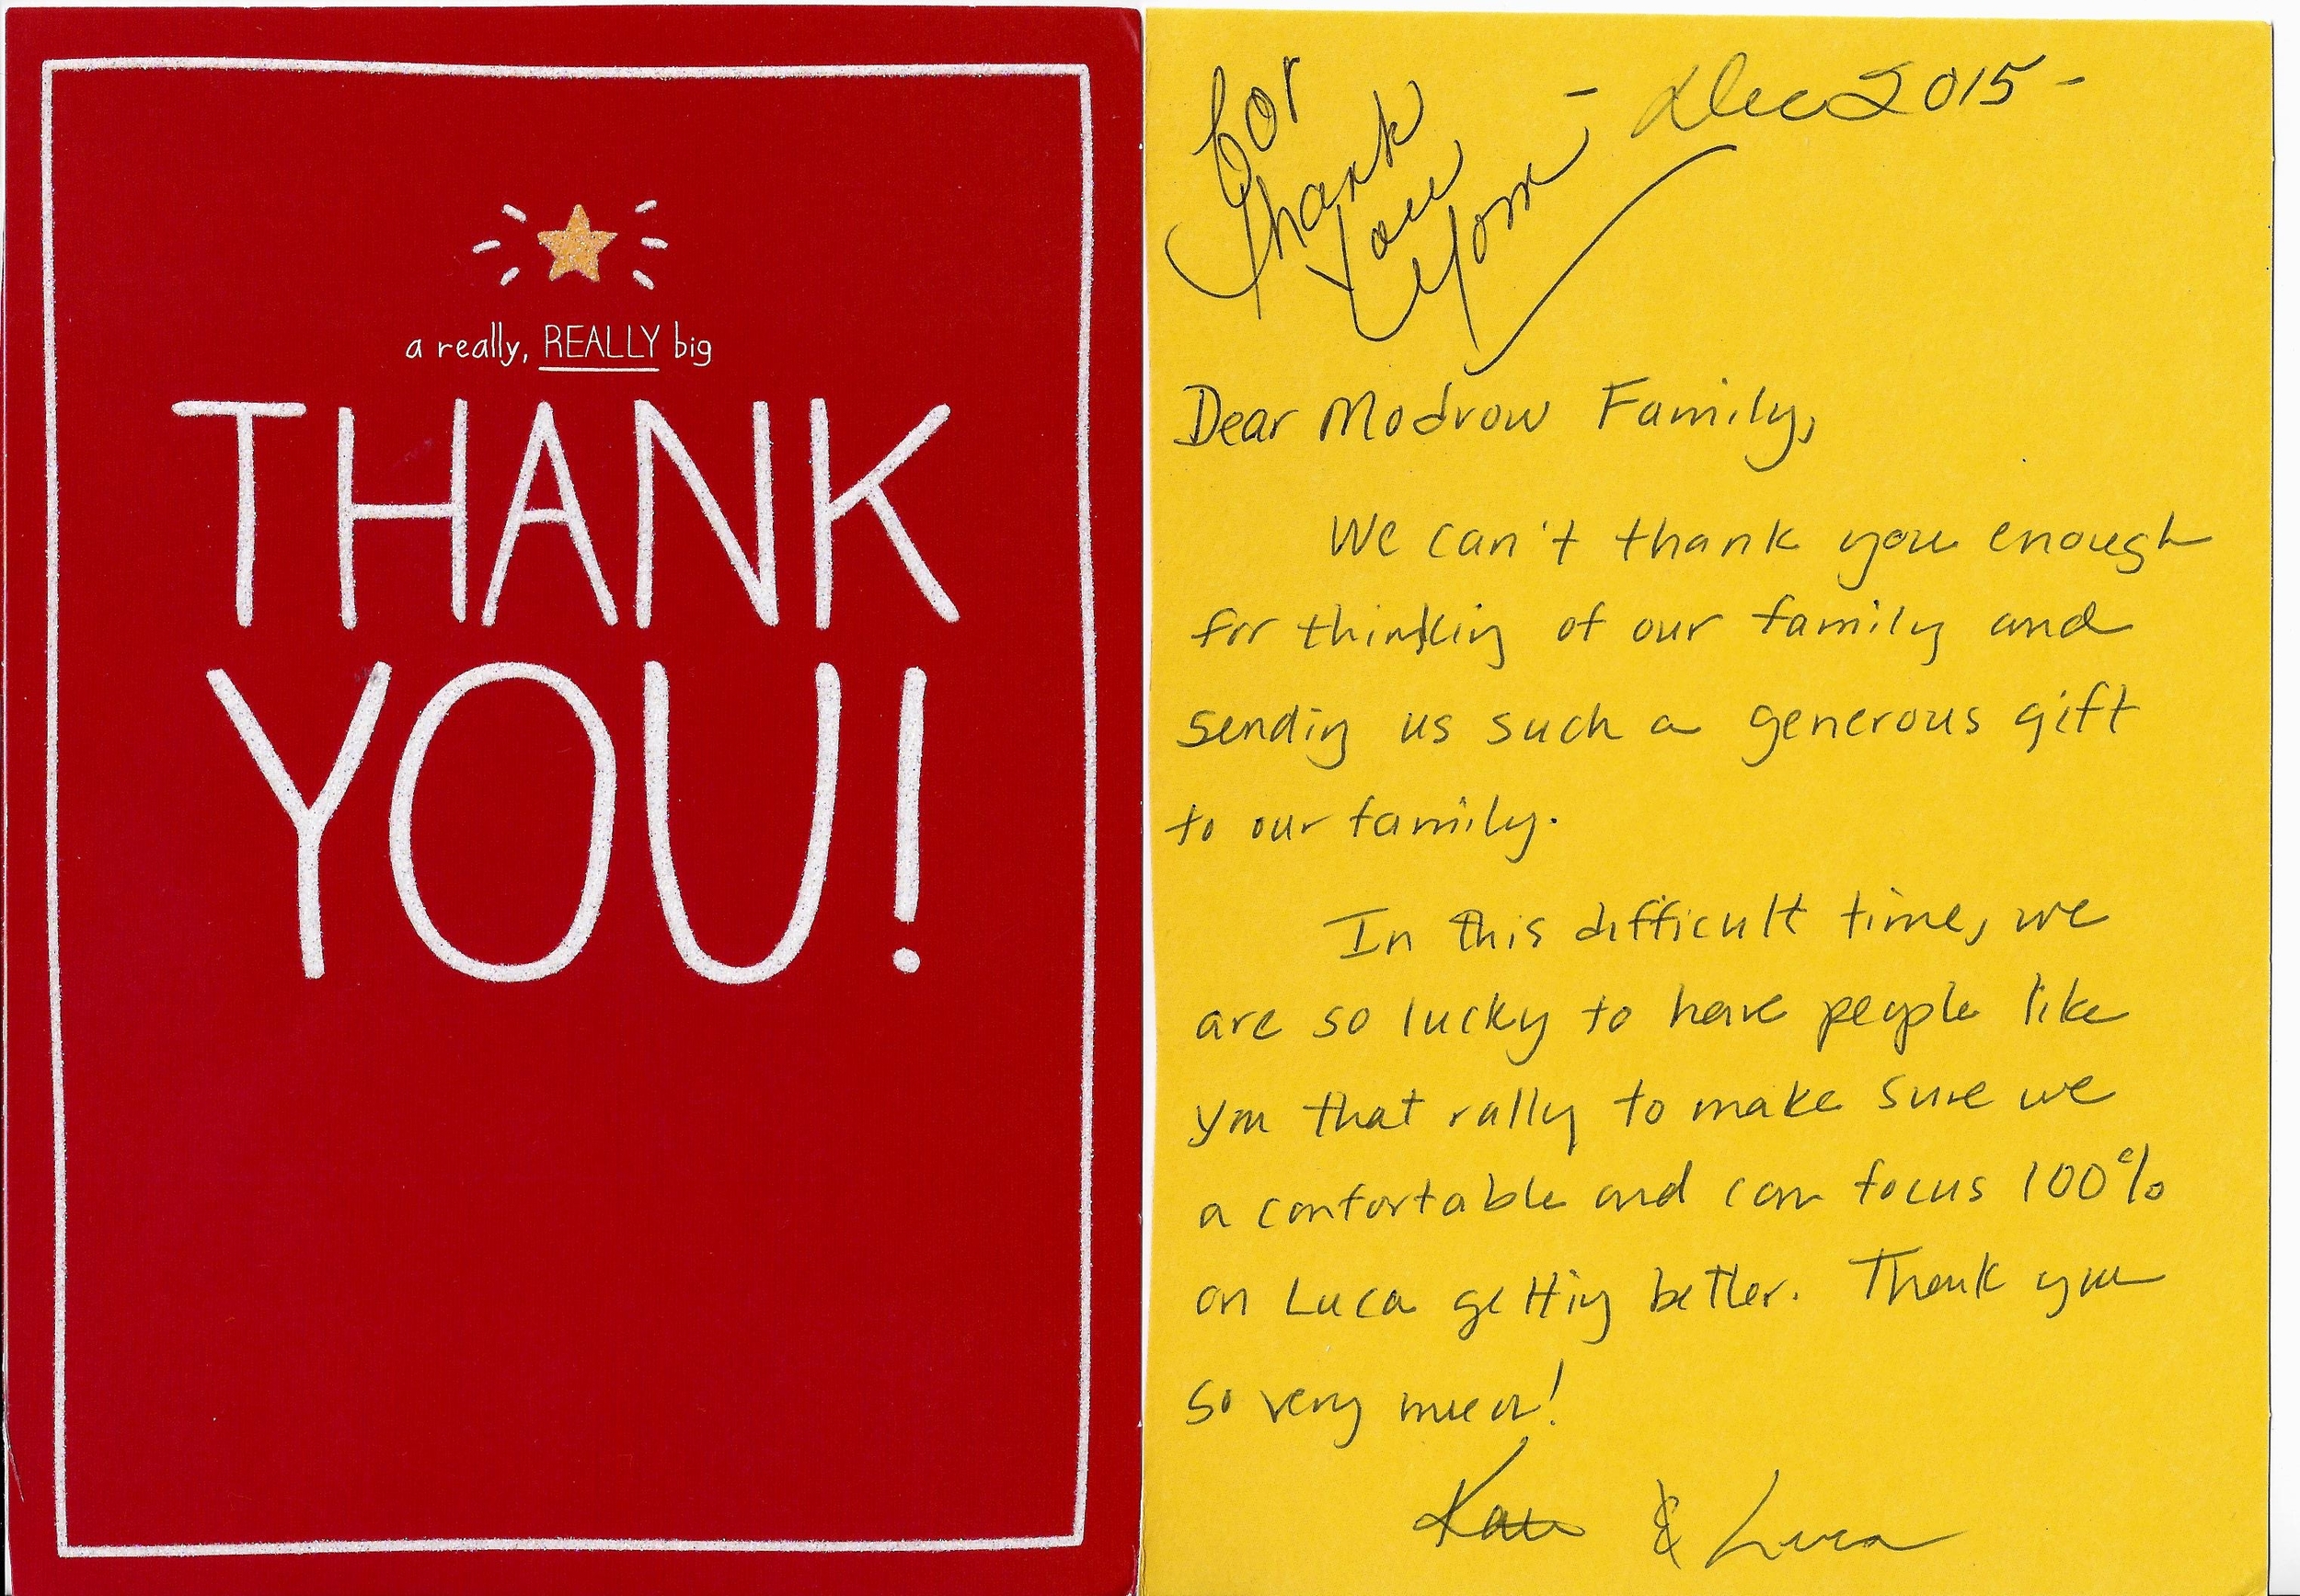 a really, REALLY big
THANK
YOU!
for
Thank
You
- Dec 2015 -
Dear Modrow Family,
We can't thank you enough
for thinking of our family and
sending us such a generous gift
to our family.
In this difficult time, we
are so lucky to have people like
you that rally to make sure we
a comfortable and can focus 100%
on Luca getting better. Thank you
so very much!
& Luca